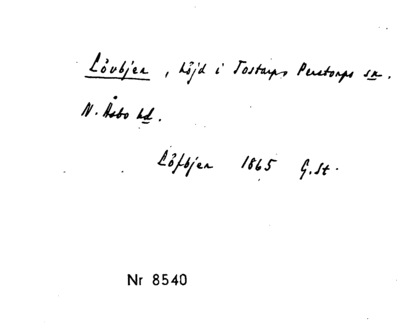 Lövbjer, höjd i Tostarps Perstorps sn.
N. Åsbo hd.
Löfbjer 1865 G.St.
Nr 8540